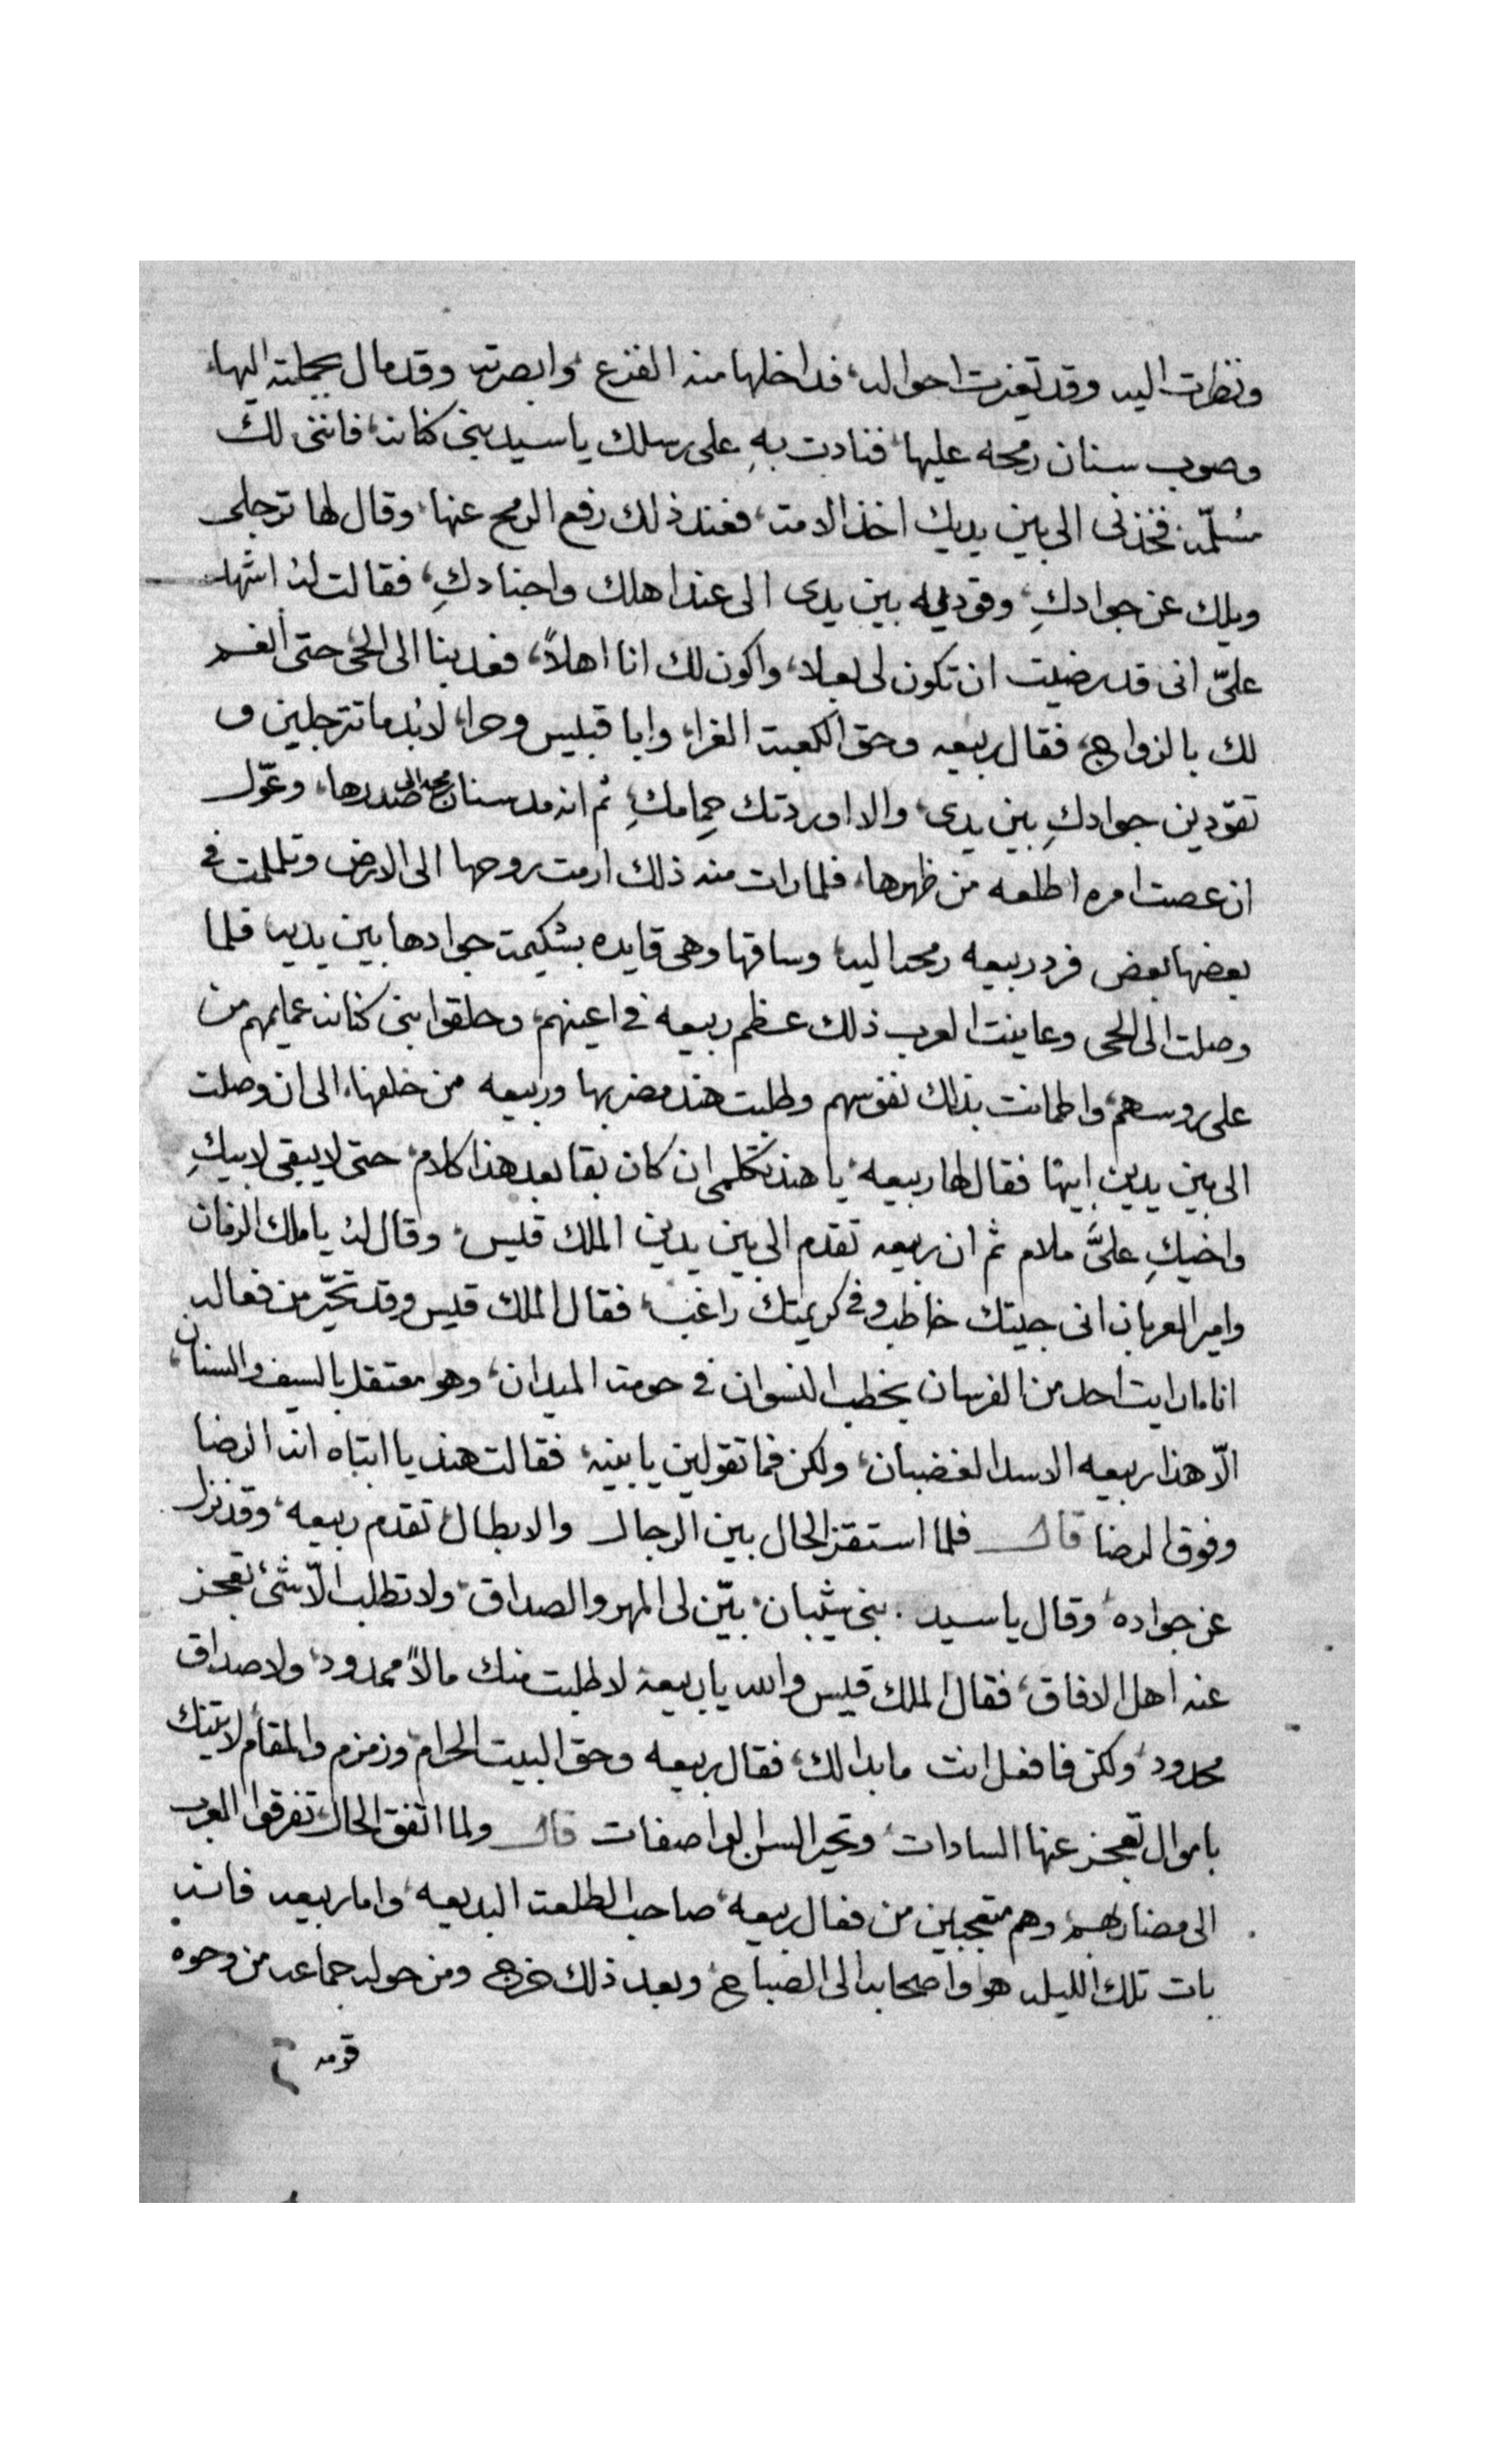 ونظرت اليه وقد تغيرت احواله، فداخلها منه الفزع، وابصرته وقد مال بجملته اليها،
وصوب سنان رمحه عليها، فنادت بهِ على رسلك يا سيد بنى كنانه، فاننى لك
مُسلّمه فخذنى الى بين يديك اخذ الامة، فعند ذلك رفع الرمح عنها، وقال لها ترجلى
ويلك عن جوادكِ، وقوديه بين يدى الى عند اهلك واجنادكِ، فقالت لهُ اشهد
علىّ انى قد رضيت ان تكون لى بعلا، واكون لك انا اهلاً، فعد بنا الى الحى حتى أنعم
لك بالزواج، فقال ربيعه وحق الكعبة الغرا، وابا قبيس وحرا، لابُد ما تترجلين و
تقودين جوادكِ بين يدى، والا اوردتك حِمامكِ، ثم انه مد سنان رمحه الى صدرها، وعوّل
ان عصت امره اطلعه من ظهرها، فلما رات منه ذلك ارمت بروحها الى الارض وتململت فى
بعضها بعض فرد ربيعه رمحه اليه، وساقها وهى قايده بشكيمة جوادها بين يديه فلما
وصلت الى الحى وعاينت العرب ذلك عظم ربيعه فى اعينهم، وحلقوا بنى كنانه عمايمهم من
على روسهم، واطمانت بذلك نفوسهم وطلبت هند مضربها وربيعه من خلفها، الى ان وصلت
الى بين يدين ابيها فقال لها ربيعه، يا هند تكلمى ان كان بقا بعد هذا كلام، حتى لا يبقى لابيكِ
واخيكِ علىَّ ملام ثم ان ربيعه تقدم الى بين يدين الملك قيس، وقال لهُ يا ملك الزمان
وامير العربان انى جيتك خاطب وفى كريمتك راغب، فقال الملك قيس وقد تحيّر من فعاله
انا ما رايت احد من الفرسان يخطب النسوان فى حومة الميدان، وهو معتقل بالسيف والسنان،
الّا هذا ربيعه الاسد الغضبان، ولكن فما تقولين يا بنيه، فقالت هند يا ابتاه انه الرضا
وفوق الرضا قال فلما استقر الحال بين الرجال والابطال تقدم ربيعه، وقد نزل
عن جواده، وقال يا سيد بنى شيبان، بيّن لى المهر والصداق، ولا تطلب الّا شئ تعجز
عنه اهل الافاق، فقال الملك قيس والله يا ربيعة لا طلبت منك مالاً ممدود، ولا صداق
محدود، ولكن فافعل انت ما بدا لك، فقال ربيعه وحق البيت الحرام، وزمزم والمقام لاتينك
باموال تعجز عنها السادات، وتحير السن الواصفات قال ولما اتفق الحال تفرقوا العرب
الى مضاربهم، وهم متعجبين من فعال ربيعه، صاحب الطلعة البديعه، واما ربيعه فانه
بات تلك الليله هو واصحابه الى الصباح، وبعد ذلك خرج ومن حوله جماعه من وجوه
قومه